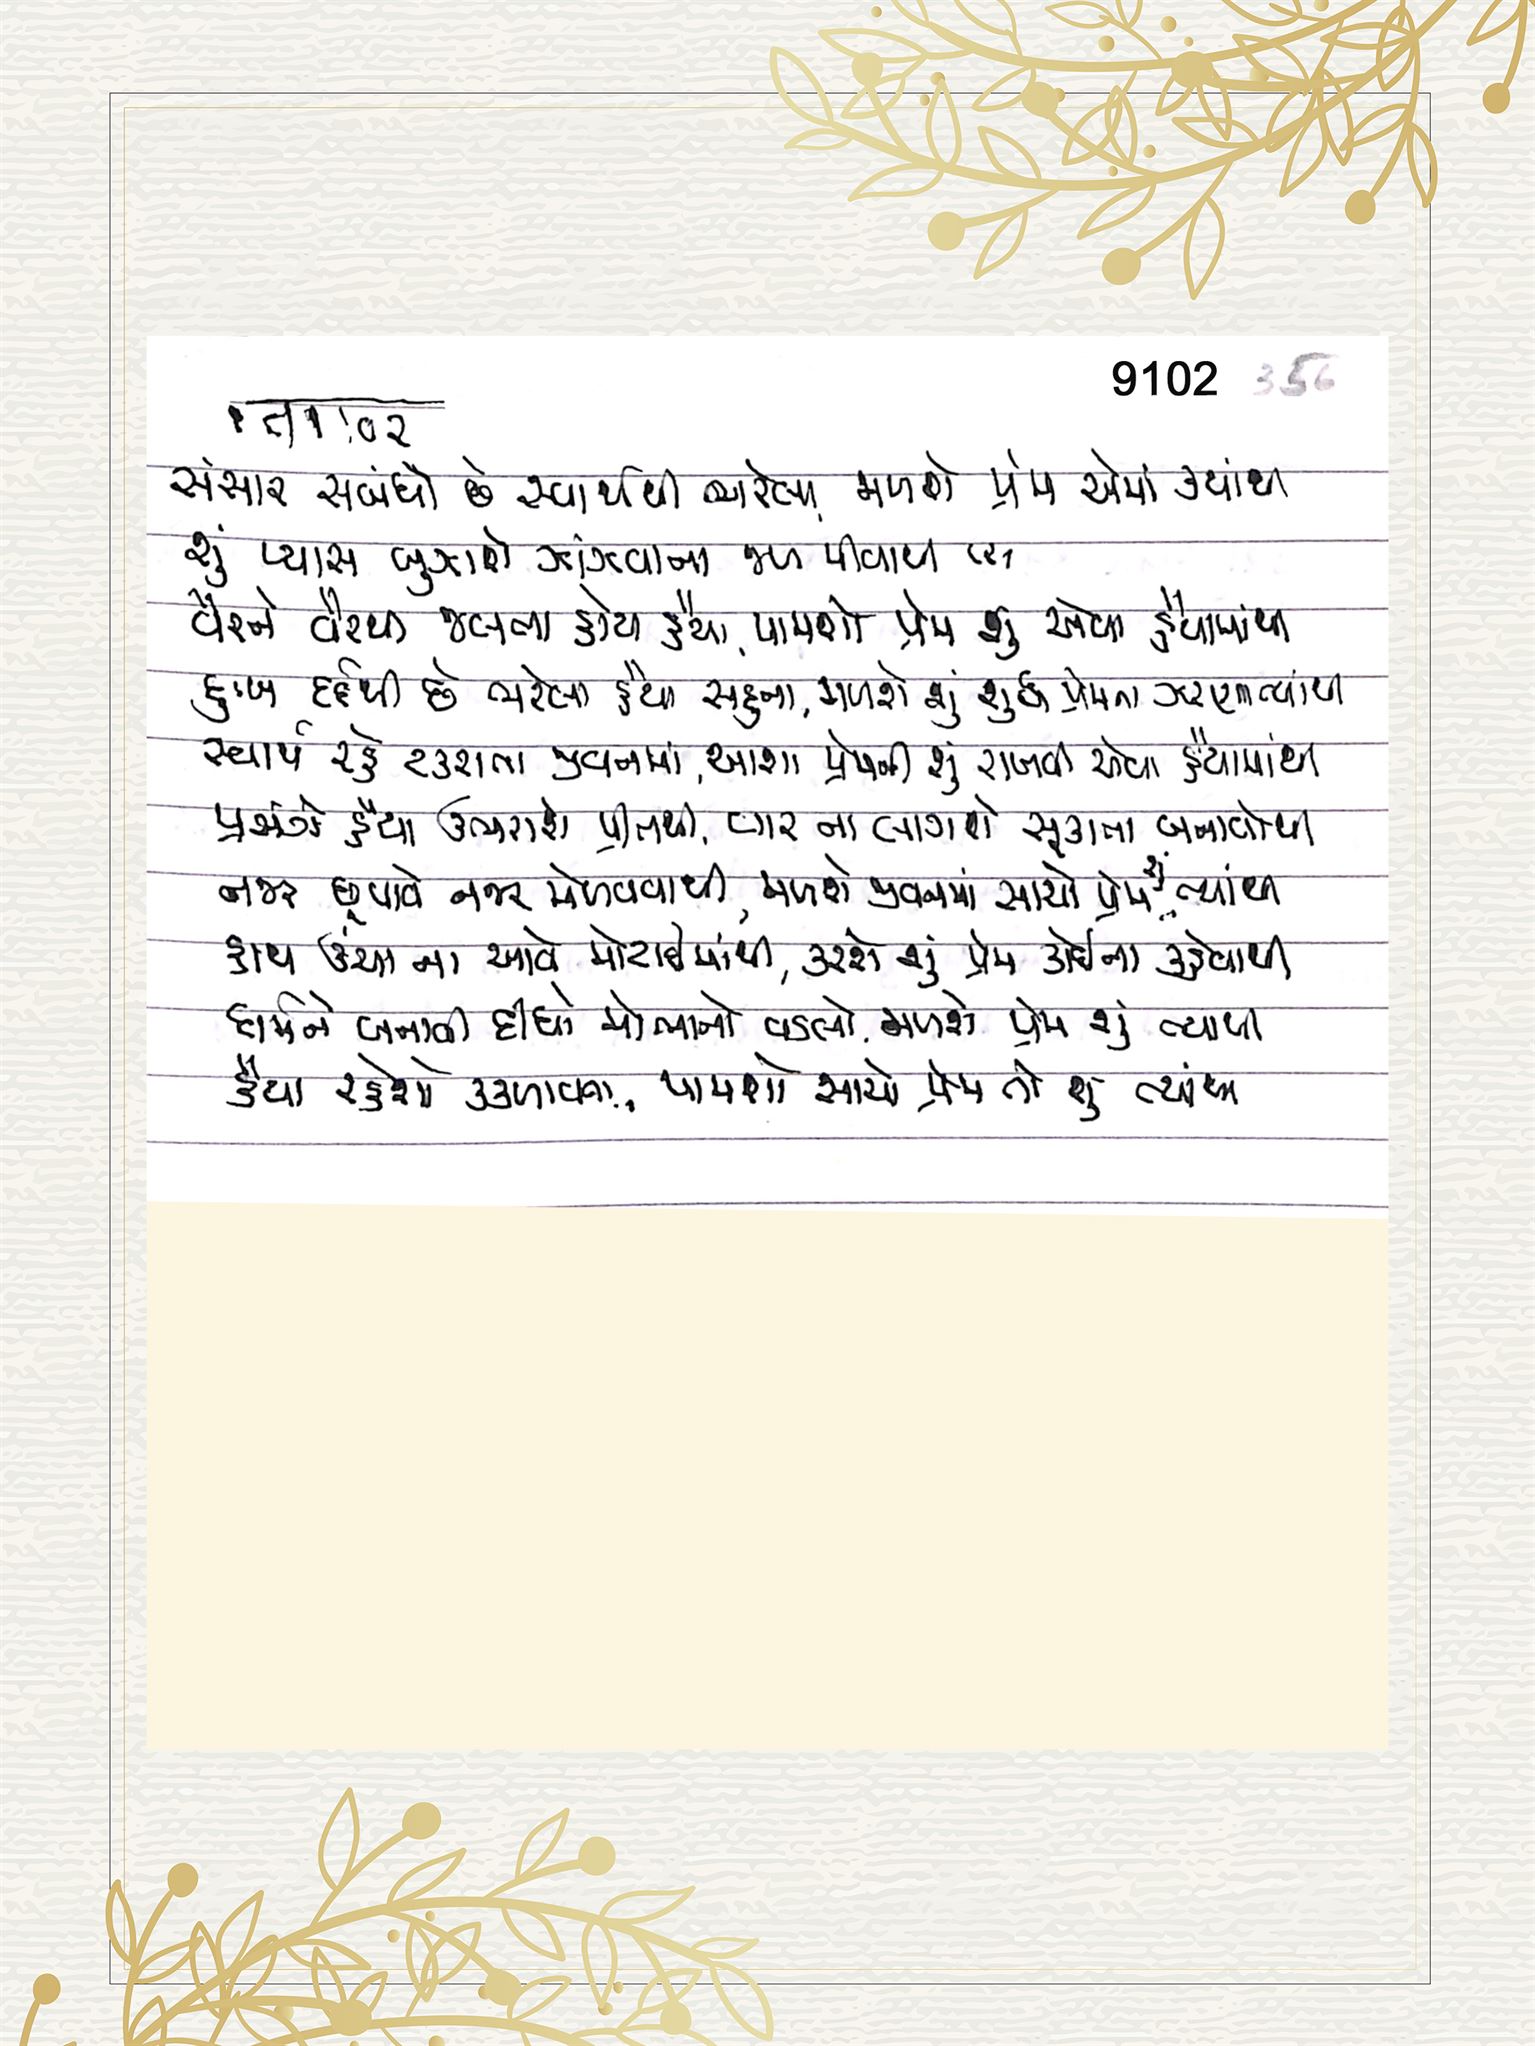 9102 356
સંસાર સબંધો છે સ્વાર્થથી ભરેલા, મળશે પ્રેમ એમાં ક્યાંથી
શું પ્યાસ બુઝાશે ઝાંઝવાના જળ પીવાથી
વૈરને વૈરથી જલતા હોય હૈયા, પામશો પ્રેમ શું એવા હૈયામાંથી
દુઃખ દર્દથી છે ભરેલા હૈયા સહુના, મળશે શું શુદ્ધ પ્રેમના ઝરણા ત્યાંથી
સ્વાર્થ રહે ટકરાતા જીવનમાં, આશા પ્રેમની શું રાખવી એવા હૈયામાંથી
હૈયા ઉભરાશે પ્રીતથી, વાર ના લાગશે સૂકાતા બનાવોથી
નજર છૂપાવે નજર મેળવવાથી, મળશે જીવનમાં સાચો પ્રેમ શું ત્યાંથી
હાથ ઉંચા ના આવે મોટાઈમાંથી, કરશે શું પ્રેમ કોઈના કહેવાથી
ધર્મને બનાવી દીધો મોભાનો વડલો, મળશે પ્રેમ શું ત્યાંથી
હૈયા રહેશે કકળાવતા, પામશો સાચો પ્રેમ તો શું ત્યાંથી